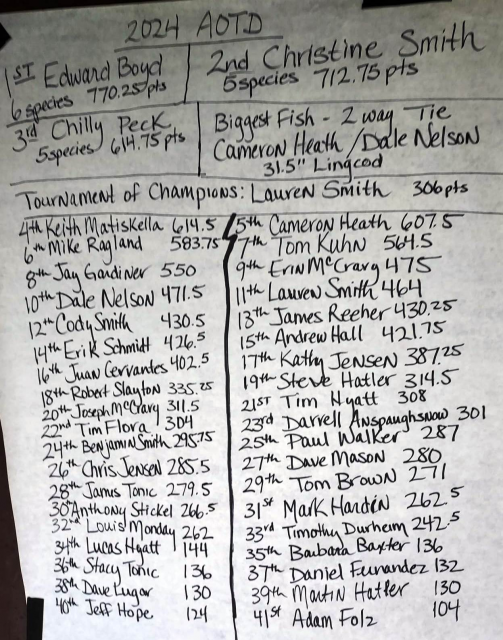 2024 AOTD
1ST Edward Boyd
6 species 770.25 pts
2nd Christine Smith
5 species 712.75 pts
3rd Chilly Peck
5 species 614.75 pts
Biggest Fish - 2 way Tie
Cameron Heath / Dale Nelson
31.5" Lingcod
Tournament of Champions: Lauren Smith 306 pts
4th Keith Matiskella 614.5
6th Mike Ragland 583.75
8th Jay Gardiner 550
10th Dale Nelson 471.5
12th Cody Smith 430.5
14th Erik Schmitt 426.5
16th Juan Cervantes 402.5
18th Robert Slayton 335.25
20th Joseph McCrary 311.5
22nd Tim Flora 304
24th Benjamin Smith 295.75
26th Chris Jensen 285.5
28th Janus Tonic 279.5
30th Anthony Stickel 266.5
32nd Louis Monday 262
34th Lucas Hyatt 144
36th Stacy Tonic 136
38th Dave Lugar 130
40th Jeff Hope 124
5th Cameron Heath 607.5
7th Tom Kuhn 564.5
9th Erin McCrary 475
11th Lauren Smith 464
13th James Reeher 430.25
15th Andrew Hall 421.75
17th Kathy Jensen 387.25
19th Steve Hatler 314.5
21ST Tim Hyatt 308
23rd Darrell Anspaughsnow 301
25th Paul Walker 287
27th Dave Mason 280
29th Tom Brown 271
31st Mark Hardin 262.5
33rd Timothy Durheim 242.5
35th Barbara Baxter 136
37th Daniel Fernandez 132
39th Martin Hatler 130
41st Adam Folz 104